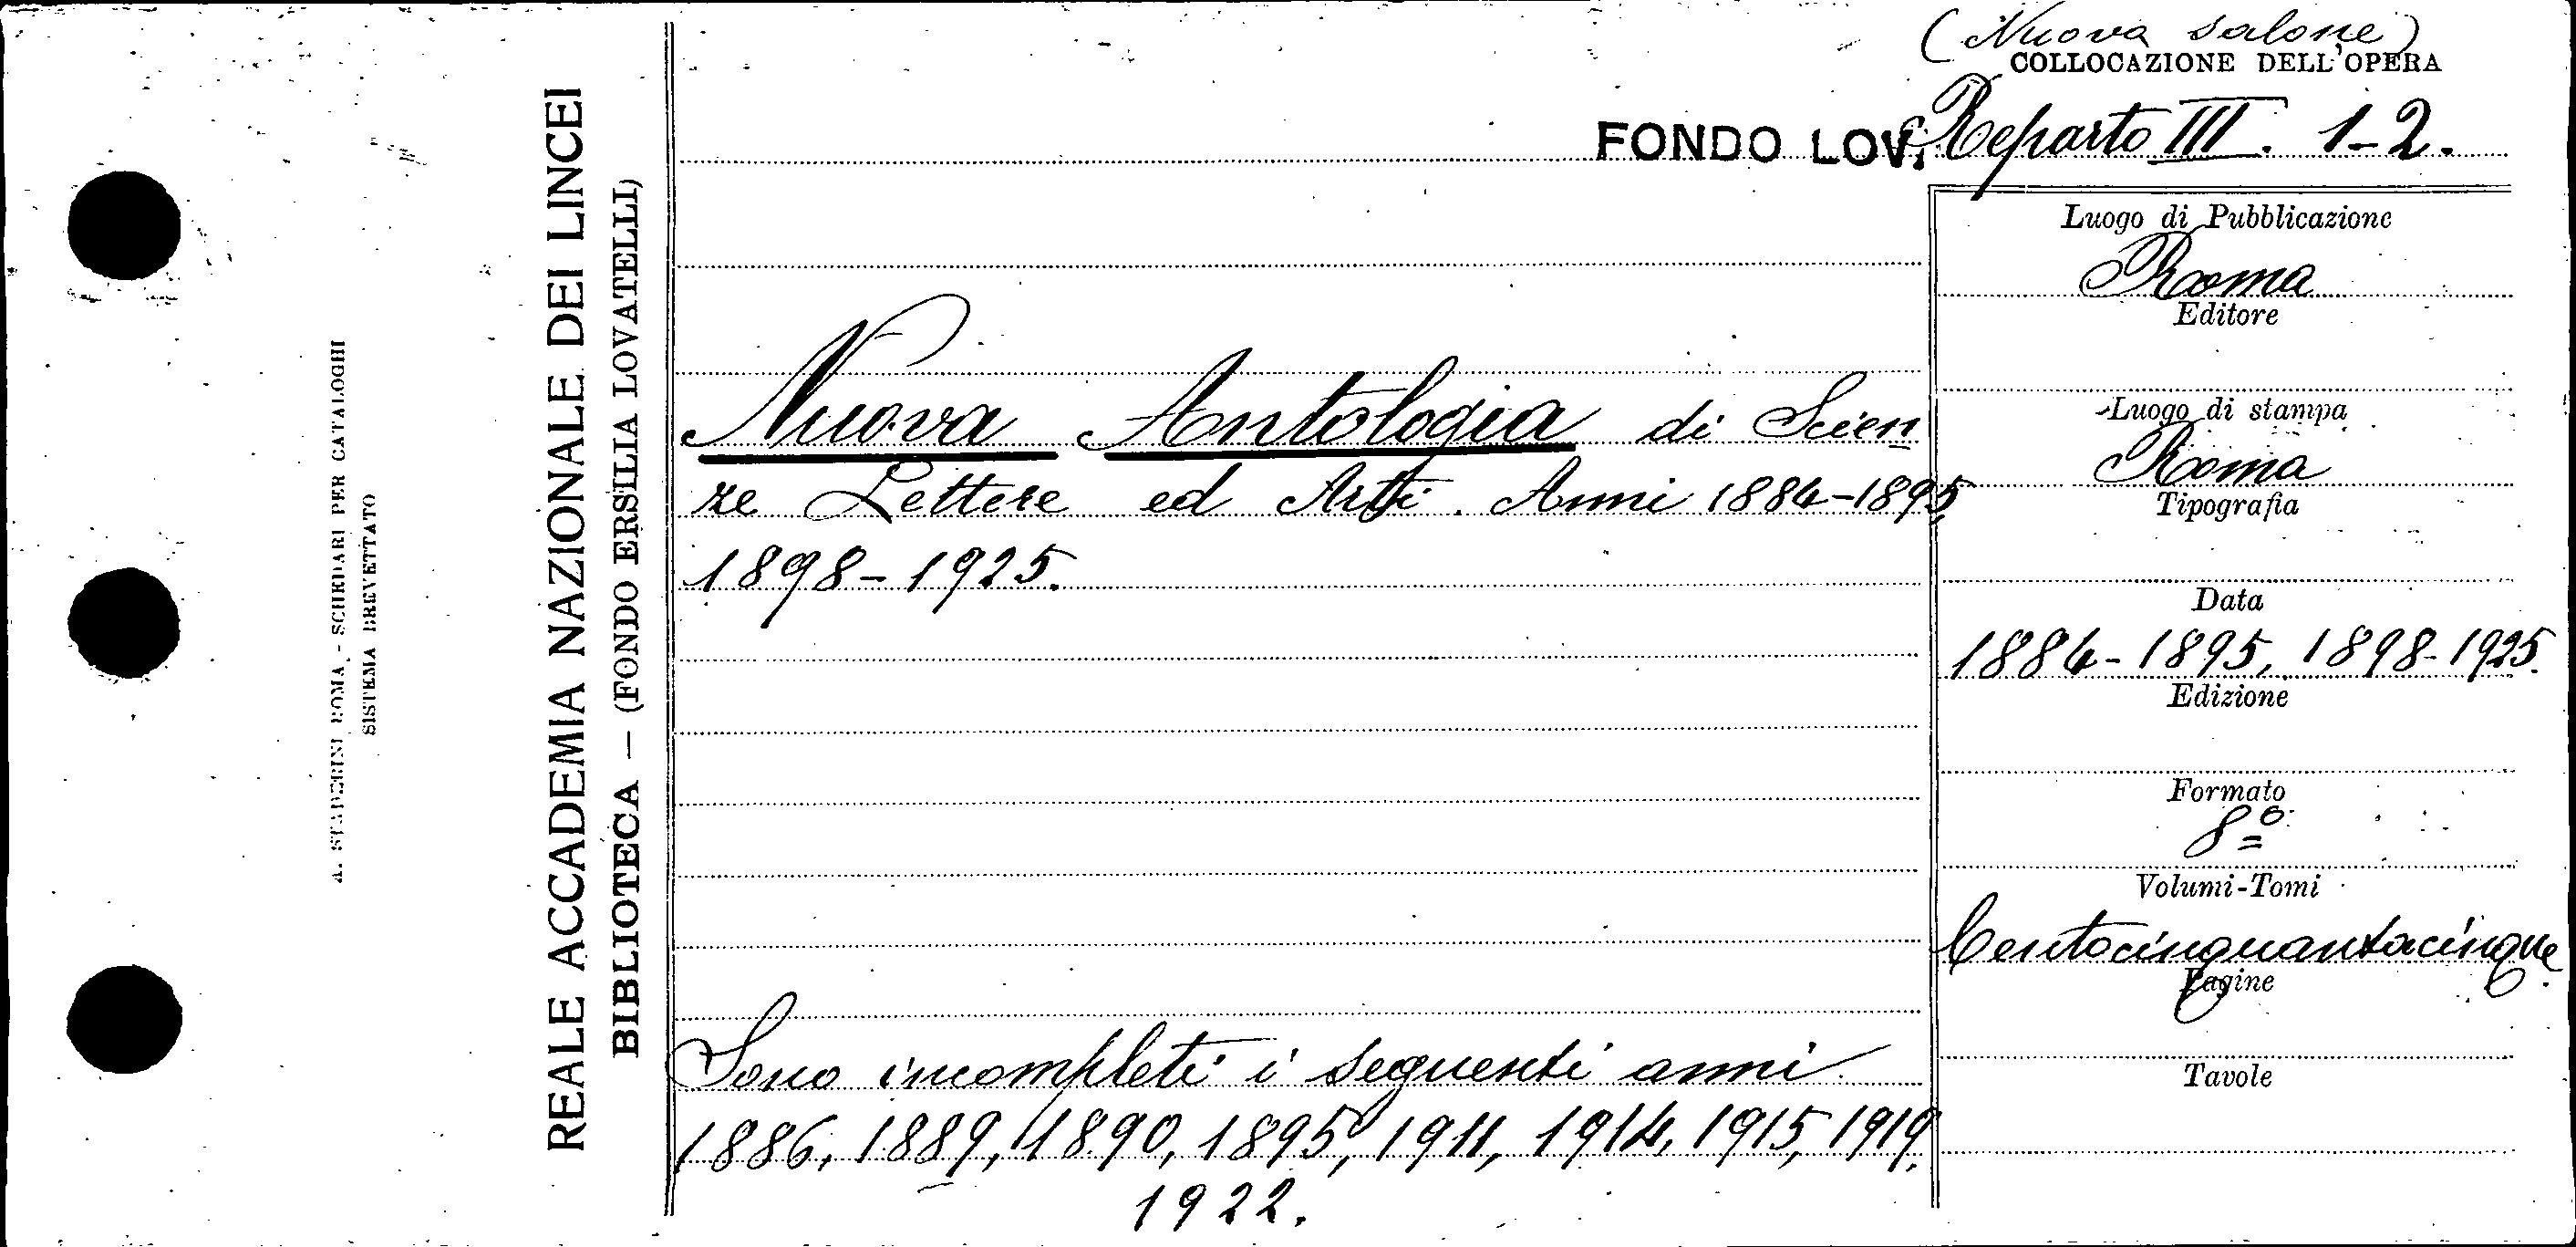 (Nuova salone)
COLLOCAZIONE DELL'OPERA
FONDO LOV. Reparto III. 1-2.
REALE ACCADEMIA NAZIONALE DEI LINCEI
BIBLIOTECA — (FONDO ERSILIA LOVATELLI)
A. STADERINI ROMA - SCHEDARI PER CATALOGHI
SISTEMA BREVETTATO
Nuova Antologia di Scien
ze Lettere ed Arti. Anni 1884-1895,
1898-1925.
Sono incompleti i seguenti anni
1886, 1889, 1890, 1895, 1911, 1914, 1915, 1919,
1922.
Luogo di Pubblicazione
Roma
Editore
Luogo di stampa
Roma
Tipografia
Data
1884-1895, 1898-1925.
Edizione
Formato
8º
Volumi-Tomi
Centocinquantacinque
Pagine
Tavole